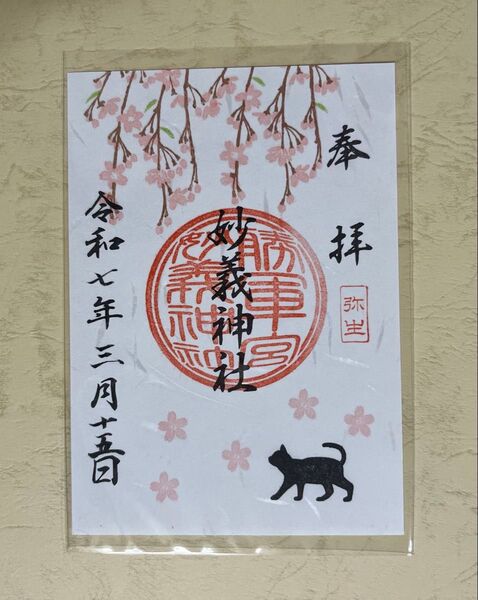 奉拝
弥生
妙義神社
勝軍宮
妙義神社
令和七年三月十五日